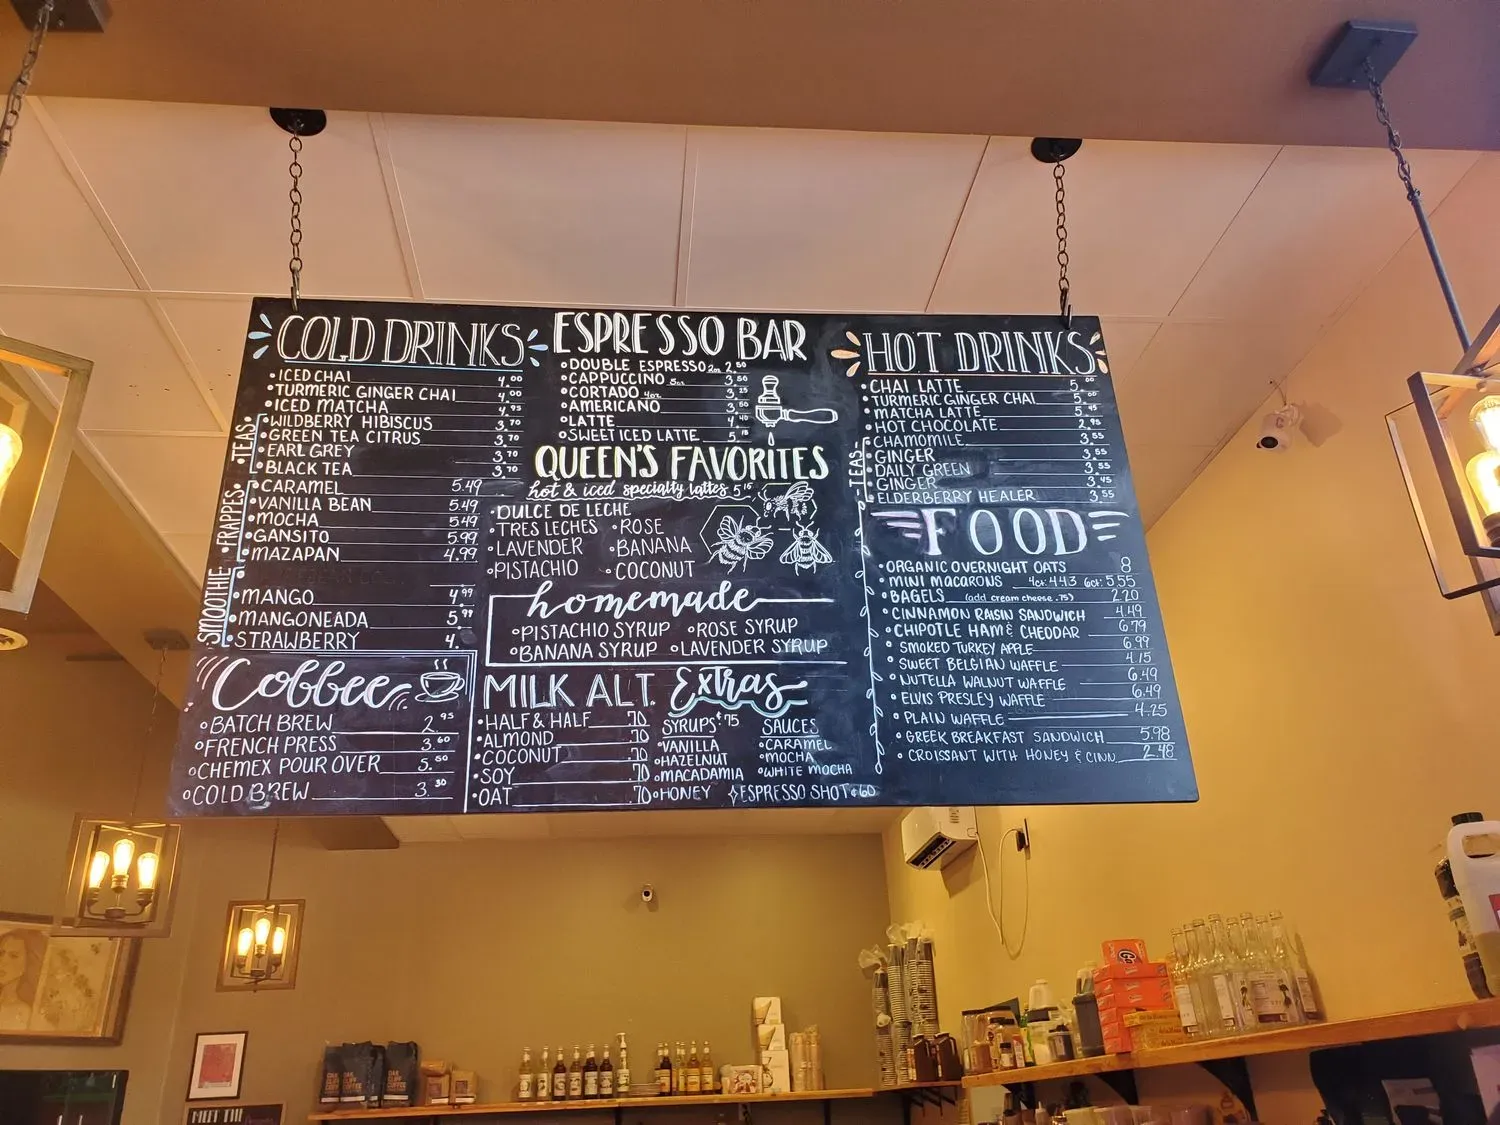 COLD DRINKS
ICED CHAI 4.00
TURMERIC GINGER CHAI 4.00
ICED MATCHA 4.95
TEAS
WILDBERRY HIBISCUS 3.70
GREEN TEA CITRUS 3.70
EARL GREY 3.70
BLACK TEA 3.70
FRAPPES
CARAMEL 5.49
VANILLA BEAN 5.49
MOCHA 5.49
GANSITO 5.99
MAZAPAN 4.99
SMOOTHIE
MANGO 4.99
MANGONEADA 5.99
STRAWBERRY 4.
Coffee
BATCH BREW 2.95
FRENCH PRESS 3.60
CHEMEX POUR OVER 5.50
COLD BREW 3.30
ESPRESSO BAR
DOUBLE ESPRESSO 2oz 2.50
CAPPUCCINO 5oz 3.50
CORTADO 4oz 3.25
AMERICANO 3.50
LATTE 4.40
SWEET ICED LATTE 5.15
QUEEN'S FAVORITES
hot & iced specialty lattes 5.15
DULCE DE LECHE
TRES LECHES ROSE
LAVENDER BANANA
PISTACHIO COCONUT
homemade
PISTACHIO SYRUP ROSE SYRUP
BANANA SYRUP LAVENDER SYRUP
MILK ALT.
HALF & HALF .70
ALMOND .70
COCONUT .70
SOY .70
OAT .70
Extras
SYRUPS ¢75
VANILLA
HAZELNUT
MACADAMIA
HONEY
SAUCES
CARAMEL
MOCHA
WHITE MOCHA
ESPRESSO SHOT ¢60
HOT DRINKS
CHAI LATTE 5.00
TURMERIC GINGER CHAI 5.00
MATCHA LATTE 5.45
HOT CHOCOLATE 2.95
TEAS
CHAMOMILE 3.55
GINGER 3.55
DAILY GREEN 3.55
GINGER 3.45
ELDERBERRY HEALER 3.55
FOOD
ORGANIC OVERNIGHT OATS 8
MINI MACARONS 4ct: 4.43 6ct: 5.55
BAGELS (add cream cheese .75) 2.20
CINNAMON RAISIN SANDWICH 4.49
CHIPOTLE HAM & CHEDDAR 6.79
SMOKED TURKEY APPLE 6.99
SWEET BELGIAN WAFFLE 4.15
NUTELLA WALNUT WAFFLE 6.49
ELVIS PRESLEY WAFFLE 6.49
PLAIN WAFFLE 4.25
GREEK BREAKFAST SANDWICH 5.98
CROISSANT WITH HONEY & CINN. 2.48
OAK CLIFF COFFEE
OAK CLIFF COFFEE
MEET THE